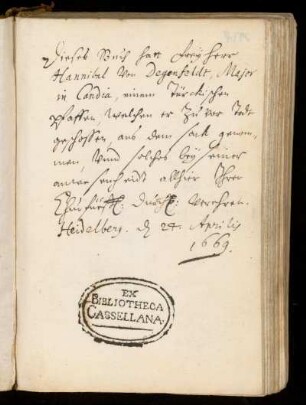 Dieses Buch hatt Freyherr
Hannibal Von Degenfeldt, Major
in Candia, einem Türckischen
Pfaffen, welchen er zuvor todt
geschossen, aus dem sack genom-
men, Vnnd solches bey seiner
anwesenheidt alhier Ihrer
Churfürstl: Durchl: Verehret.
Heidelberg. d 24. Aprilis
1669.
EX
BIBLIOTHECA
CASSELLANA.